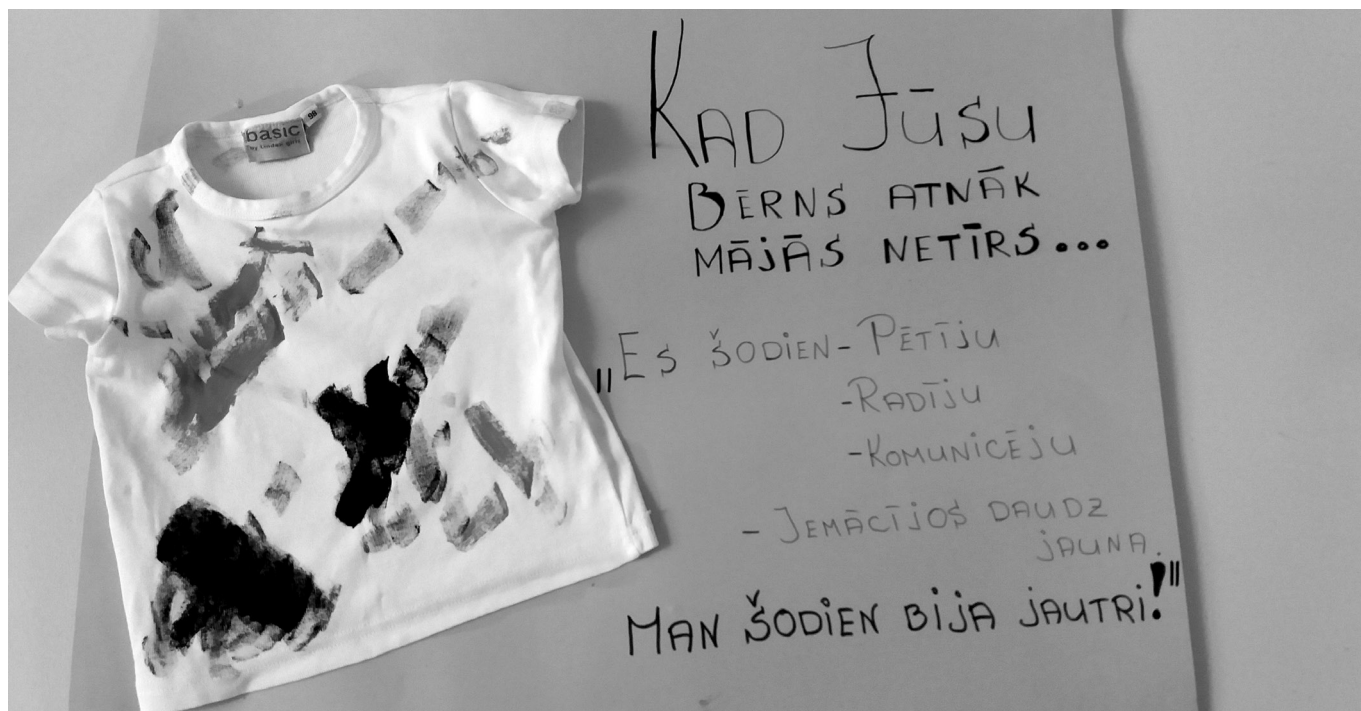 basic
by Lindex girls
98
KAD JŪSU
BĒRNS ATNĀK
MĀJĀS NETĪRS...
"ES ŠODIEN - PĒTĪJU
- RADĪJU
- KOMUNICĒJU
- IEMĀCĪJOS DAUDZ
JAUNA.
MAN ŠODIEN BIJA JAUTRI!"